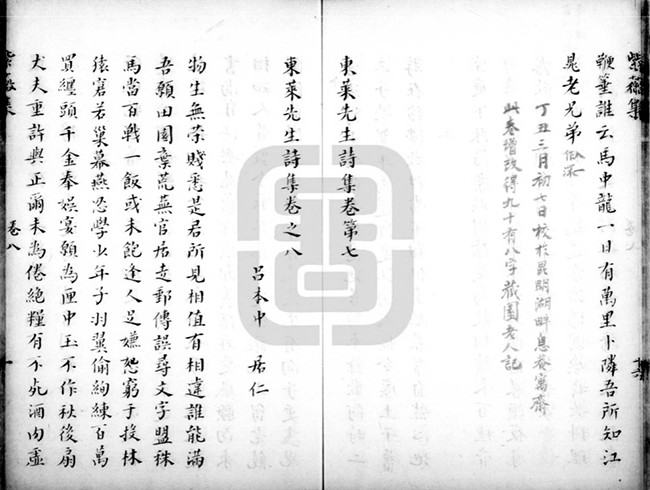 紫薇集
十六
鞭箠誰云馬中龍一日有萬里卜隣吾所知江
晁老兄弟似不
丁丑三月初七日校於昆明湖畔息菴寓齋
此卷增改得九十有八字藏園老人記
東萊先生詩集卷第七
東萊先生詩集卷之八
呂本中 居仁
物生無榮賤焉是君所見相值有相違誰能滿
吾願田園棄荒蕪官居走郵傳誤尋文字盟秣
馬當百戰一飯或未飽逢人足嫌恕窮于投林
猿窘若巢幕燕忍學少年子羽翼偷絢練百萬
買纏頭千金奉娛宴願為匣中玉不作秋後扇
丈夫重許與正爾未為倦絶糧有不死酒肉虛
紫薇集
卷八
一